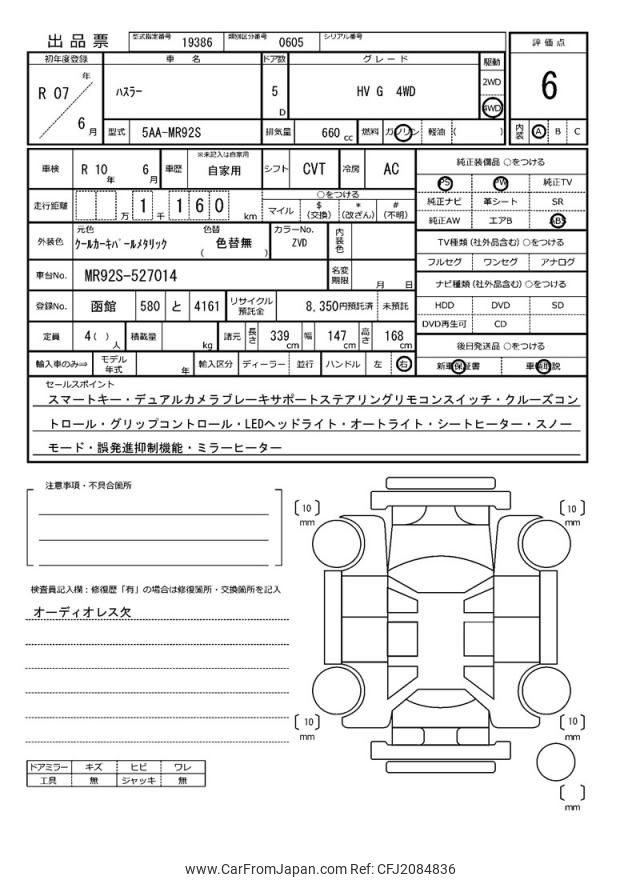 出品票
型式指定番号 19386 類別区分番号 0605 シリアル番号
評価点
初年度登録 車名 ドア数 グレード 駆動
R 07 年 6 月
ハスラー 5 D HV G 4WD
2WD
4WD
6
型式 5AA-MR92S 排気量 660 cc 燃料 ガソリン 軽油 ( )
内装 A B C
車検 R 10 年 6 月 車歴 ※未記入は自家用 自家用 シフト CVT 冷房 AC
走行距離 万 1 千 1 6 0 km
○をつける
マイル $ (交換) * (改ざん) # (不明)
外装色 元色 クールカーキパールメタリック 色替 ( 色替無 ) カラーNo. ZVD 内装色
車台No. MR92S-527014 名変期限 月 日
登録No. 函館 580 と 4161 リサイクル預託金 8,350円預託済 未預託
定員 4 ( ) 人 積載量 kg 諸元 長さ 339 cm 幅 147 cm 高さ 168 cm
輸入車のみ⇒ モデル年式 年 輸入区分 ディーラー 並行 ハンドル 左 右
純正装備品 ○をつける
PS PW 純正TV
純正ナビ 革シート SR
純正AW エアB ABS
TV種類 (社外品含む) ○をつける
フルセグ ワンセグ アナログ
ナビ種類 (社外品含む) ○をつける
HDD DVD SD
DVD再生可 CD
後日発送品 ○をつける
新車保証書 車輌取説
セールスポイント
スマートキー・デュアルカメラブレーキサポートステアリングリモコンスイッチ・クルーズコン
トロール・グリップコントロール・LEDヘッドライト・オートライト・シートヒーター・スノー
モード・誤発進抑制機能・ミラーヒーター
注意事項・不具合箇所
検査員記入欄：修復歴「有」の場合は修復箇所・交換箇所を記入
オーディオレス欠
ドアミラー キズ ヒビ ワレ
工具 無 ジャッキ 無
[ 10 ] mm
[ 10 ] mm
[ 10 ] mm
[ 10 ] mm
[ ] mm
www.CarFromJapan.com Ref: CFJ2084836